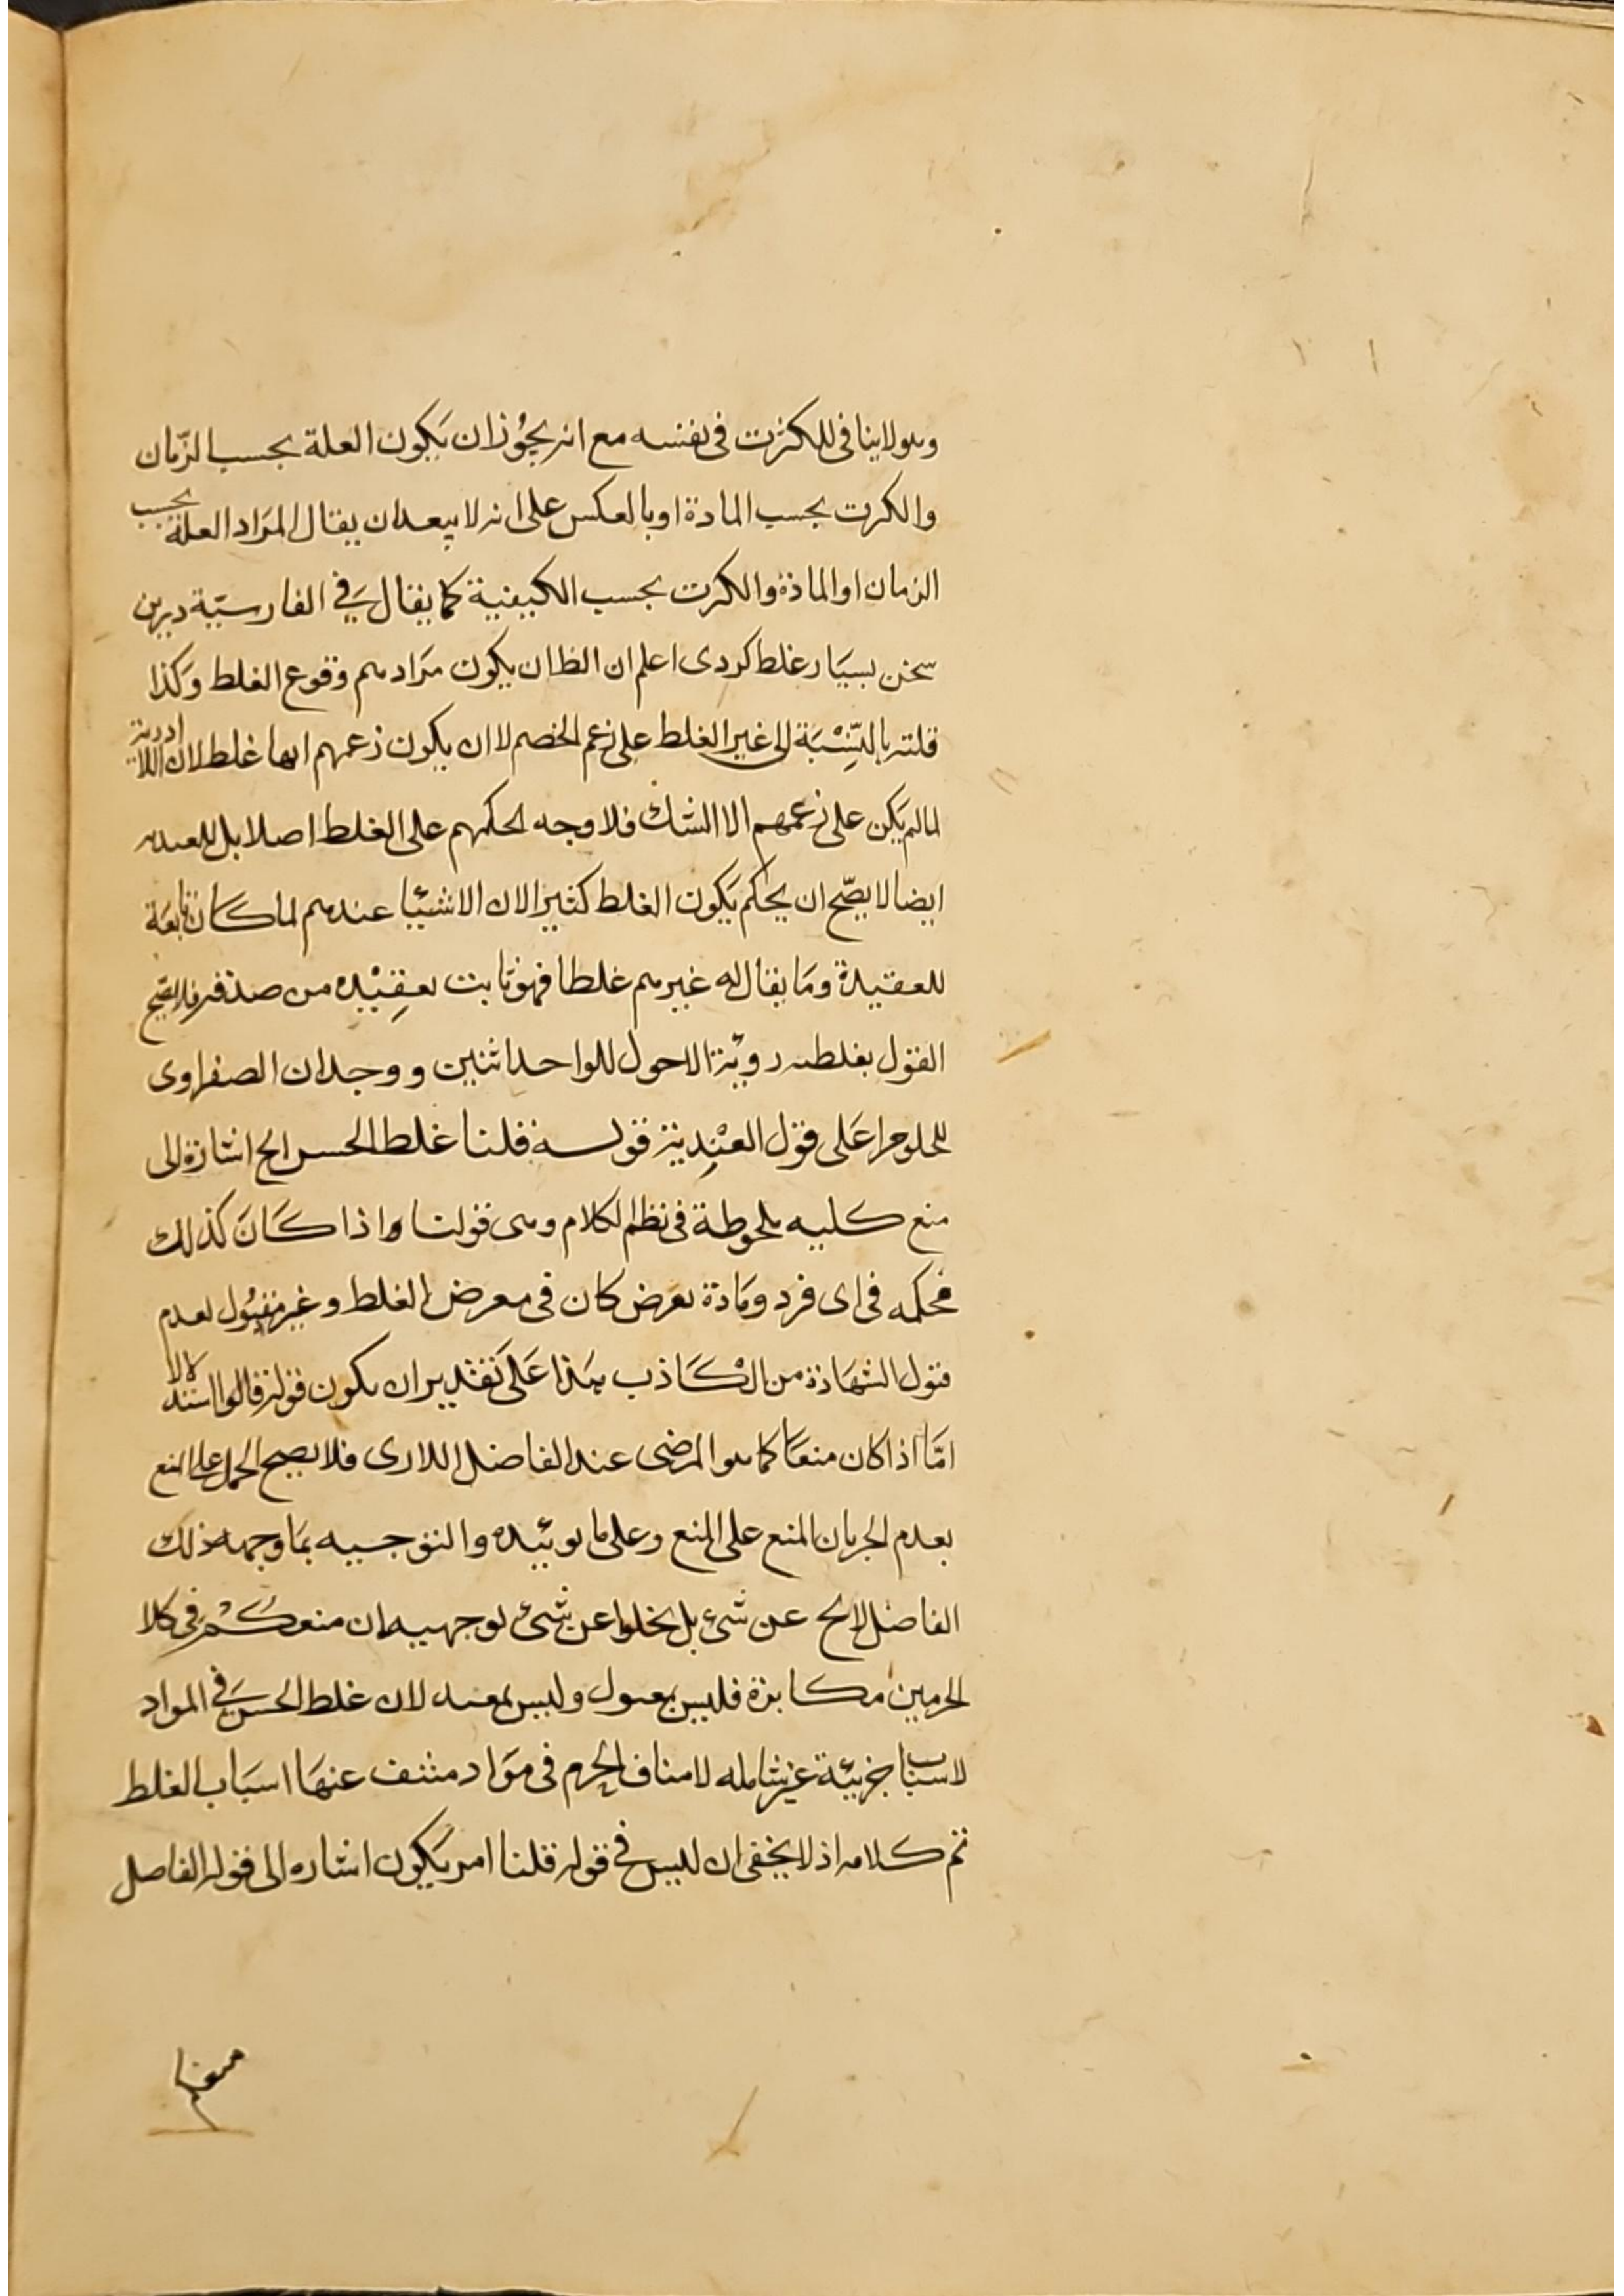 وهو لا ينافى للكثرت فى نفسه مع انه يجوز ان يكون العلة بحسب الزمان
والكرت بحسب المادة او بالعكس على انه لا يبعد ان يقال المراد العلة بحسب
الزمان او الماذة والكرت بحسب الكيفية كما يقال في الفارسيّة درين
سخن بسيار غلط كردى اعلم ان الظ ان يكون مرادهم وقوع الغلط وكذا
قلته بالنِّسْبَة الى غير الغلط على زعم الخصم لا ان يكون زعمهم انها غلط لان اللاادرية
لما لم يكن على زعمهم الا الشك فلا وجه لحكمهم على الغلط اصلا بل للعنديه
ايضا لا يصّح ان يحكم بكون الغلط كثيرا لان الاشيا عندهم لما كان تابعة
للعقيدة وما يقال له غيرهم غلطا فهو ثابت بعقيده من صدقه فلا يصّح
القول بغلطه رويّة الاحول للواحد اثنين ووجدان الصفراوى
للحلو مرا على قول العِنْدِيّة قوله قلنا غلط الحس الخ اشارة الى
منع كليه ملحوظة فى نظم الكلام وهى قولنا واذا كان كذلك
فحكمه فى اى فرد ومادة بعرض كان فى معرض الغلط وغير مقبول لعدم
قبول الشهاذة من الكاذب هذا على تقدير ان يكون قوله قالوا استدلالا
امّا اذا كان منعا كما هو المرضى عند الفاضل اللارى فلا يصح الحمل على المنع
بعدم الجريان المنع على المنع وعلى ما يويّده والتوجيه بما وجهه ذلك
الفاضل لا يخ عن شئ بل يخلوا عن شئ توجهيه ان منعكم فى كلا
الحرمين مكابرة فليس بمعبول وليس بمعنه لان غلط الحس في المواد
لاسباب جزيئة غير شامله لا مناف الجرم فى مواد منتف عنها اسباب الغلط
تم كلامه اذ لا يخفى ان ليس في قوله قلنا امر يكون اشاره الى قوله الفاصل